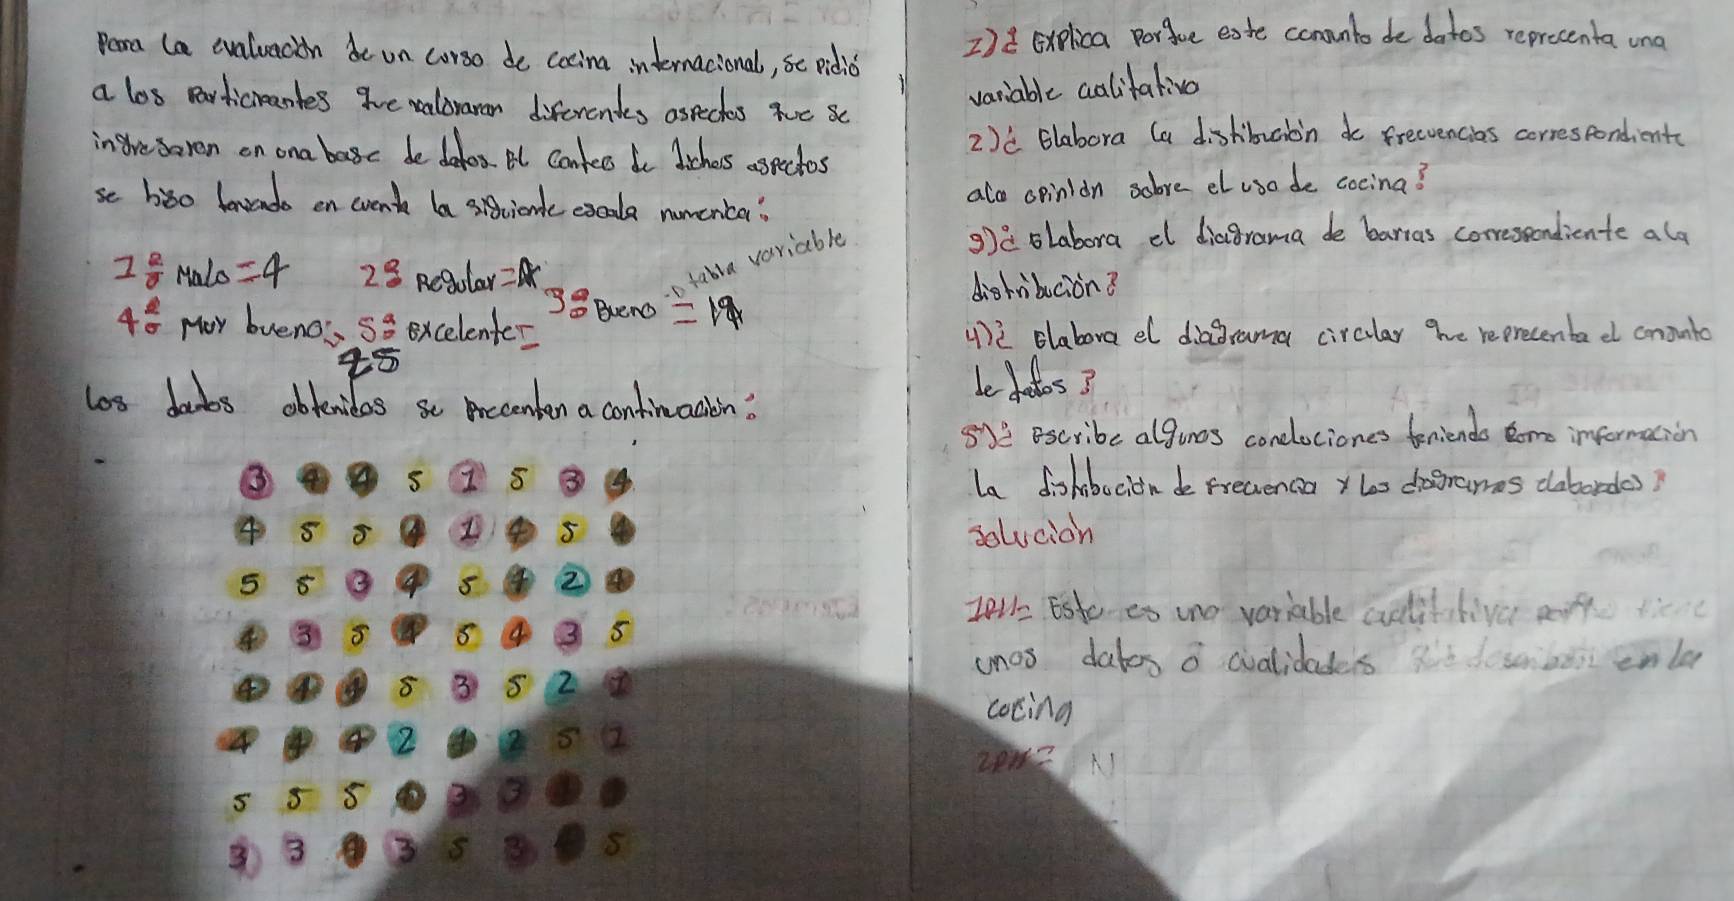 Para la evaluación de un curso de cocina internacional, se pidió
a los participantes que valoraran diferentes aspectos que se
ingresaron en una base de datos. El conteo de dichos aspectos
se hizo teniendo en cuenta la siguiente escala numerica:
tabla variable
1: Malo = 4 2: Regular = 4 3: Bueno =
4: Muy bueno: 5: excelente =
25
los datos obtenidos se precentan a continuación:
3 4 4 5 1 5 3 4
4 5 5 4 1 4 5 4
5 5 3 4 5 4 2 4
4 3 5 4 5 4 3 5
4 4 4 5 3 5 2 1
4 4 4 2 4 2 5 1
5 5 5 4 3 3
3 3 4 3 5 3 4 5
1)¿ Explica porque este conjunto de datos reprecenta una
variable cualitativa
2)¿ Elabora la distribución de frecuencias correspondiente
ala opinión sobre el uso de cocina?
3)¿ Elabora el diagrama de barras correspondiente ala
distribución?
4)¿ Elabora el diagrama circular que reprecenta el conjunto
de datos?
5)¿ Escribe algunos concluciones teniendo como imformación
la distribución de frecuencia y los diagramas elaborados?
solución
1R// Este es una variable cualitativa tiene
unos datos o cualidades en la
cocina
2R//= N